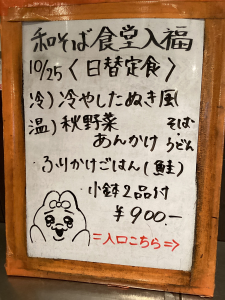 和そば食堂入福
10/25〈日替定食〉
冷）冷やしたぬき風
温）秋野菜 そば・
あんかけ うどん
ふりかけごはん（鮭）
小鉢2品付
¥900.-
=入口こちら⇒